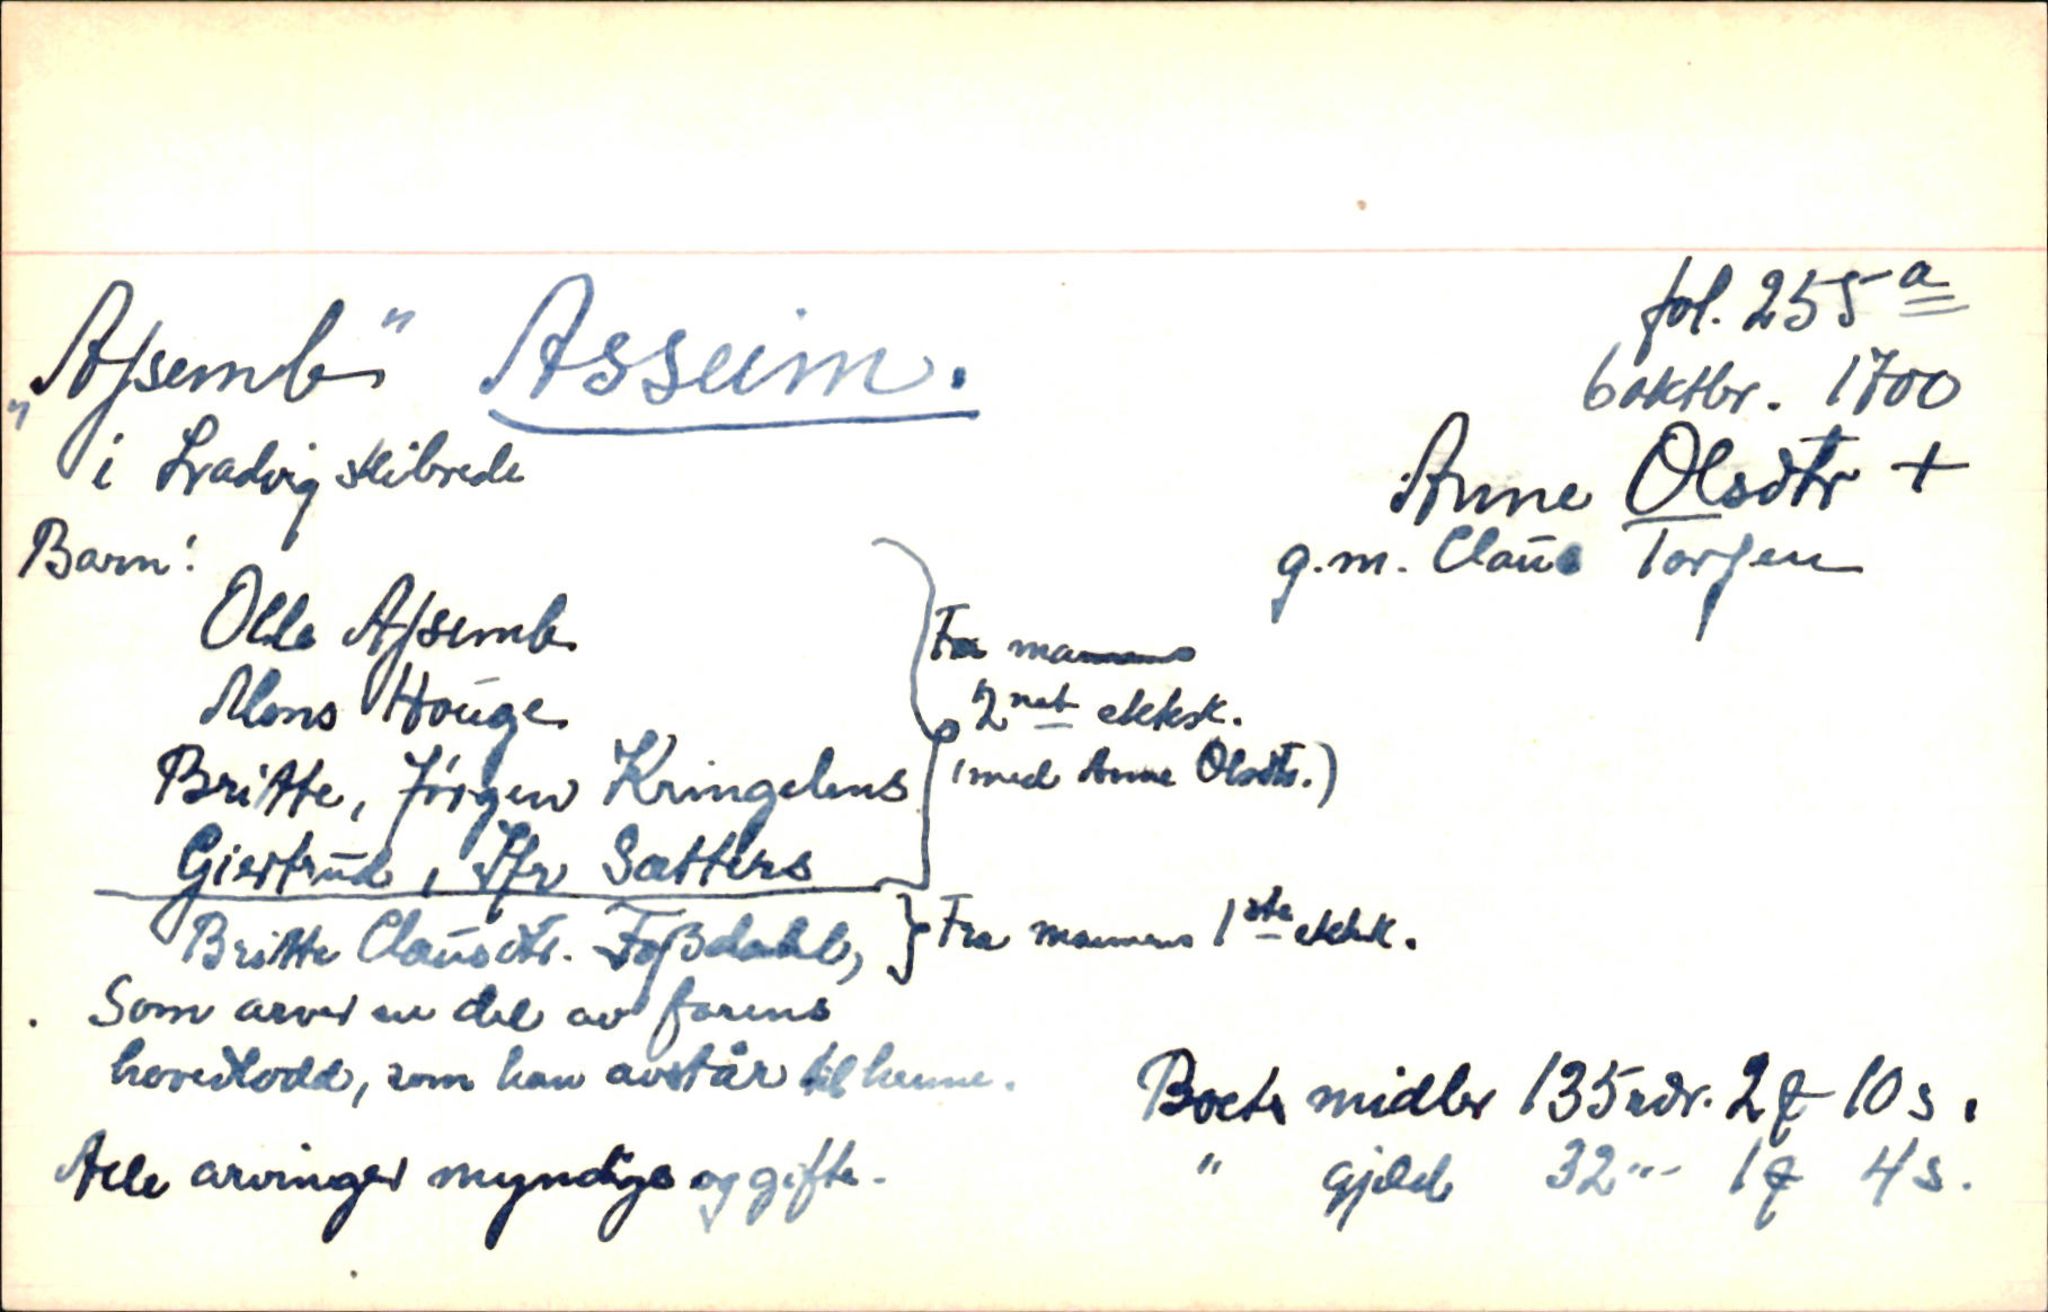 „Aſsemb" Asseim.
fol. 255 a
6 oktbr. 1700
i Lradvig skibrede
Anne Olsdtr +
g.m. Claūs Torſen
Barn:
Olle Aſsemb
Mons Hoūge
Britte, Jörgen Kringelens
Giertrūd, Ifr Sætters
Fra mannens
2net ektsk.
(med Anne Olsdtr.)
Britte Claūsdtr. Foßdahl,
Fra mannens 1ste ektsk.
Som arver en del av farens
hovedlodd, som han avstår til henne.
Alle arvinger myndige og gifte.
Boets midler 135 rdr. 2 ƒ 10 s.
" gjeld 32 "- 1 ƒ 4 s.